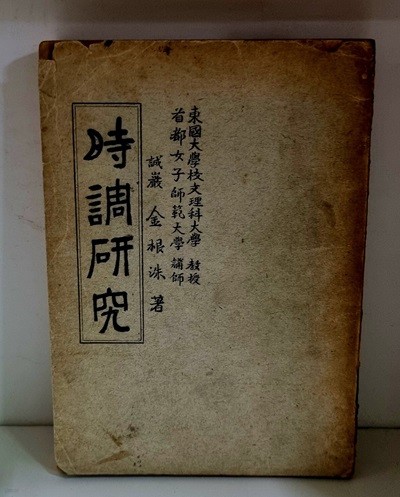 東國大學校文理科大學 教授
首都女子師範大學 講師
誠巖 金根洙 著
時調研究